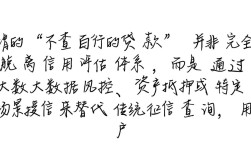 谓的“不查百行的贷款”并非完全
脱离信用评估体系，而是通过
大数大数据风控、资产抵押或特定
场景授信来替代传统征信查询，用
户